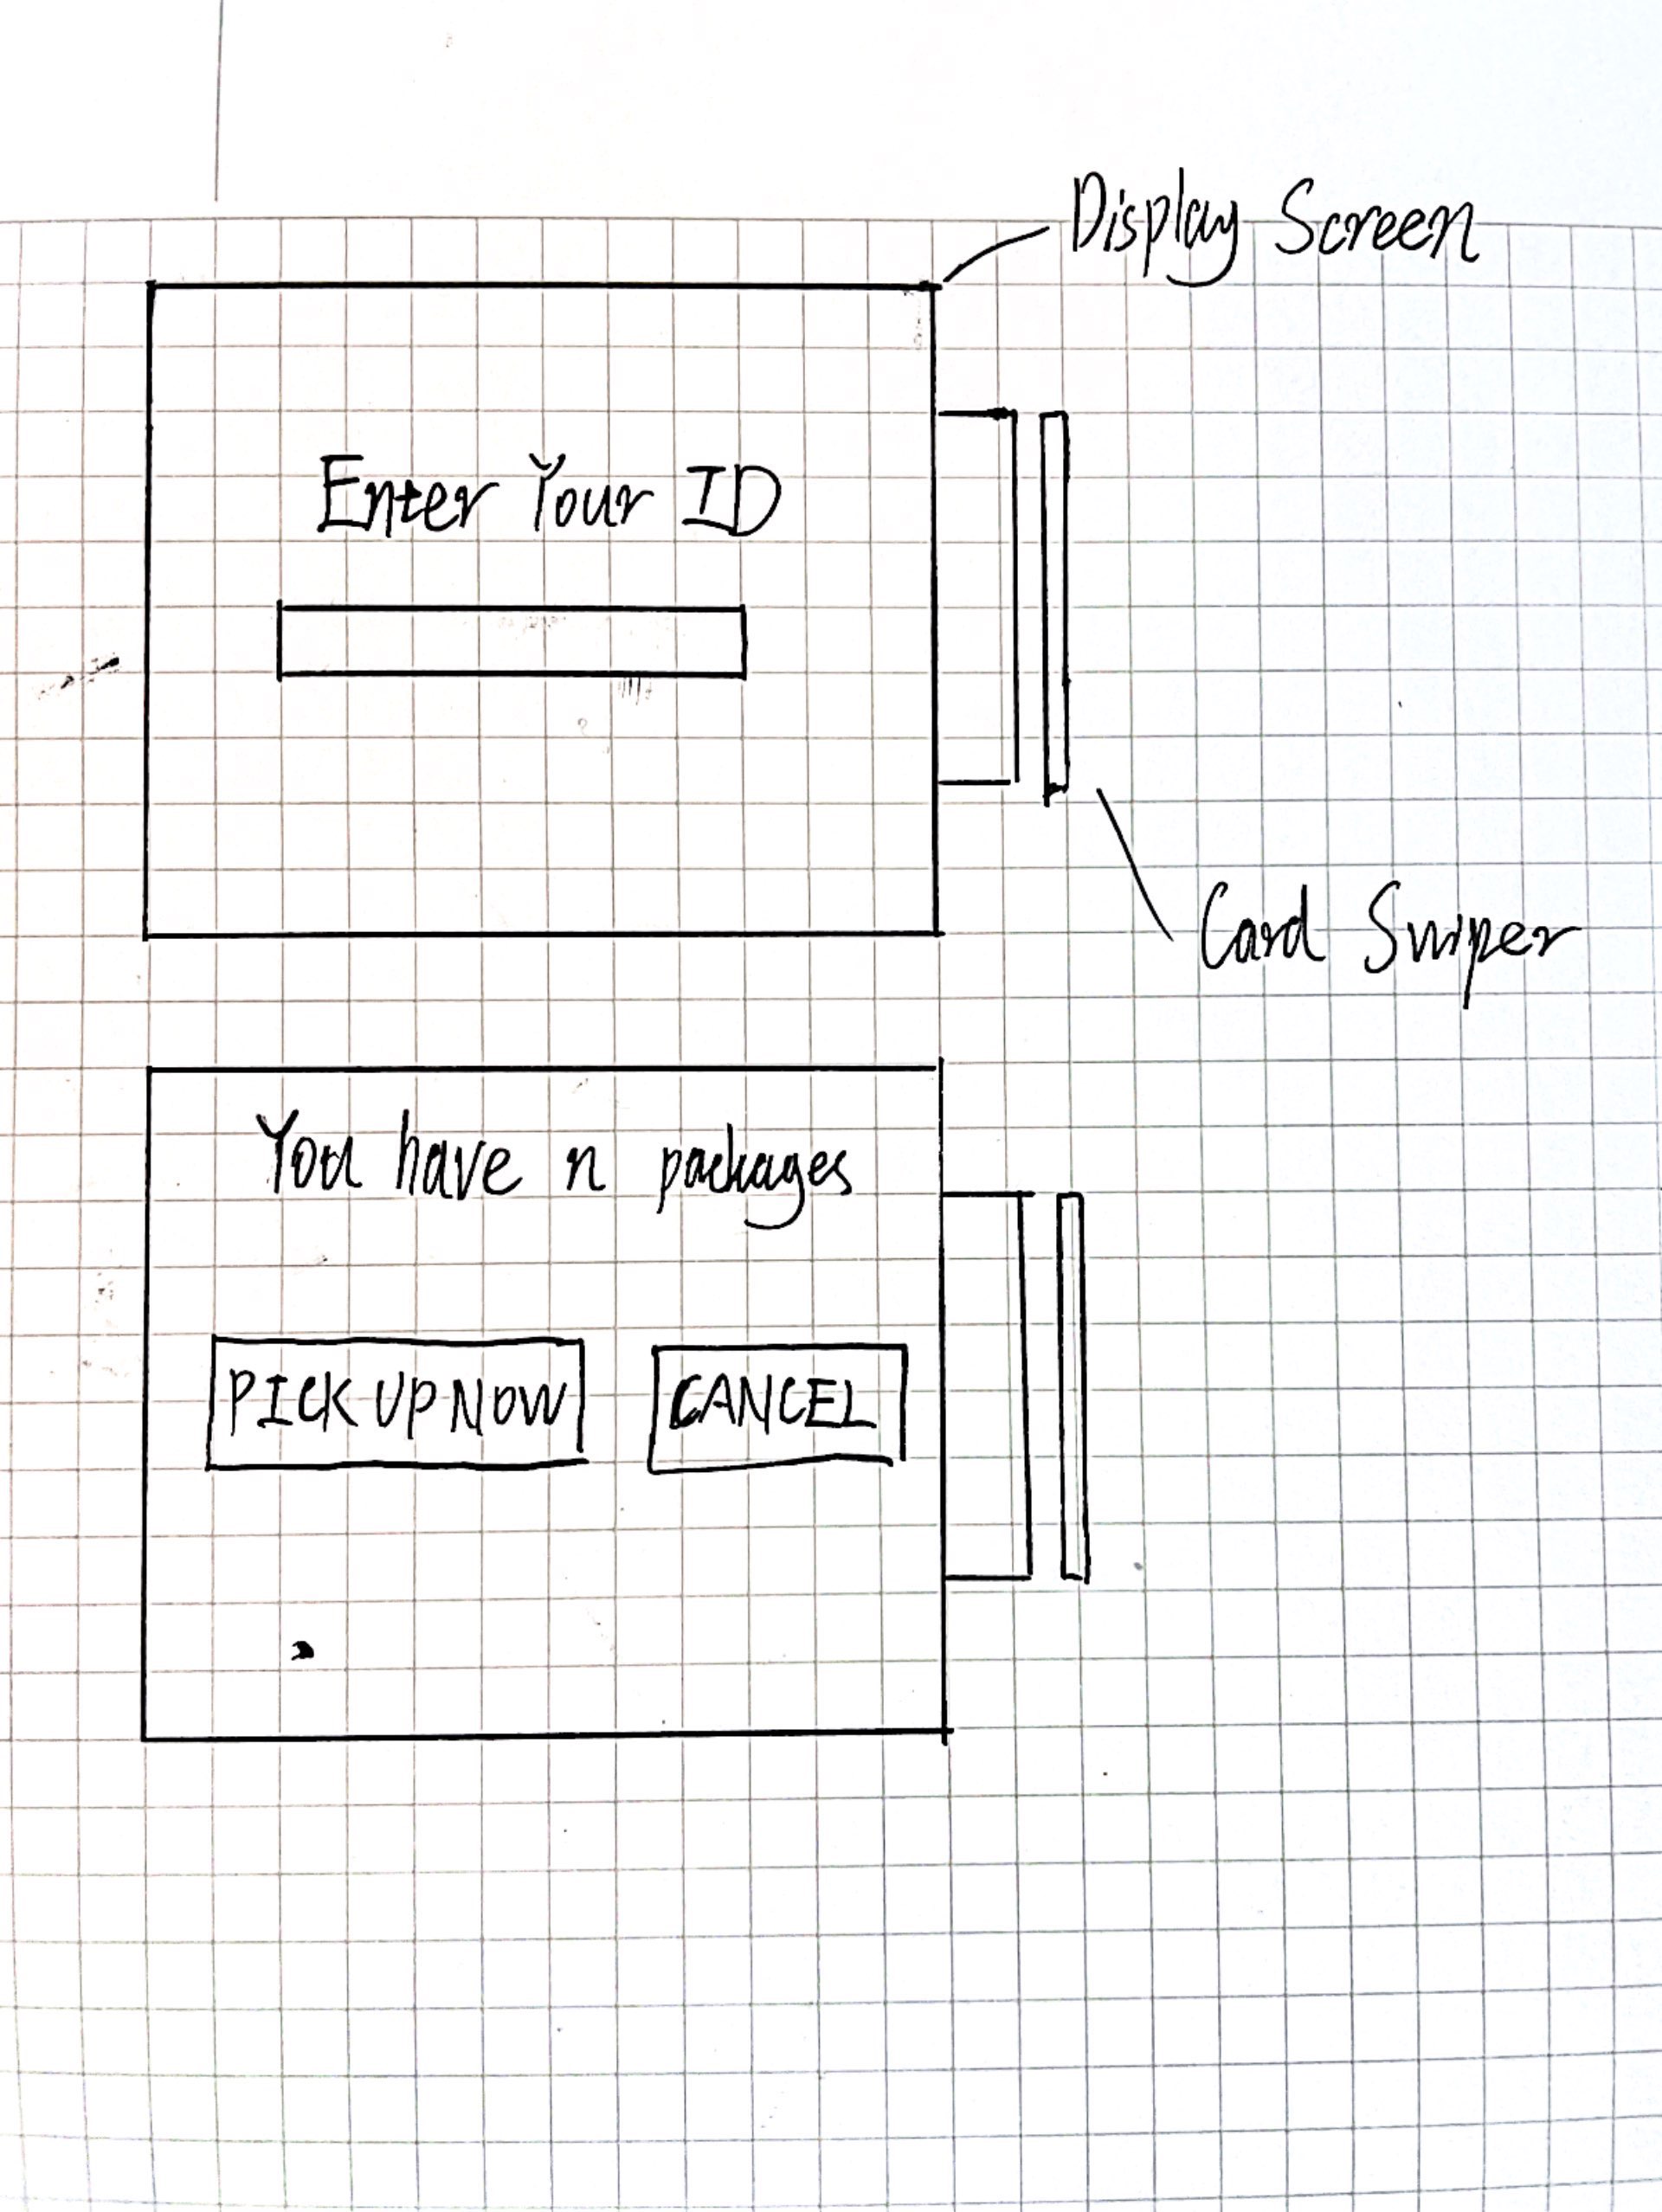 Display Screen
Enter Your ID
Card Swiper
You have n packages
PICK UP NOW
CANCEL